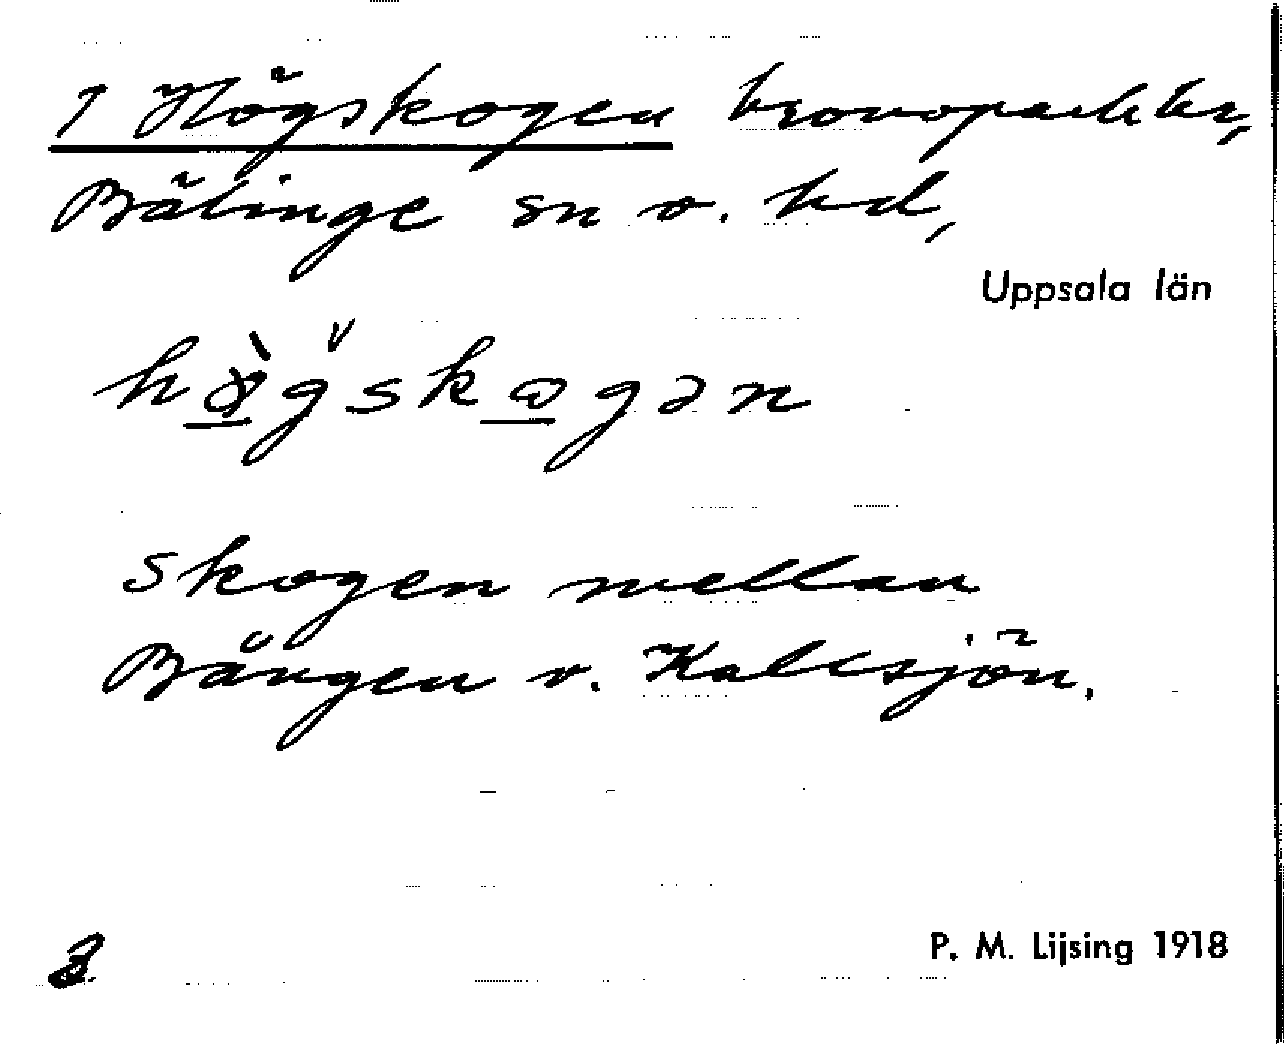 1 Högskogen kronopark kr,
Bälinge sn o. hd,
Uppsala län
högskogən
skogen mellan
Bången o. Kallsjön.
P. M. Lijsing 1918